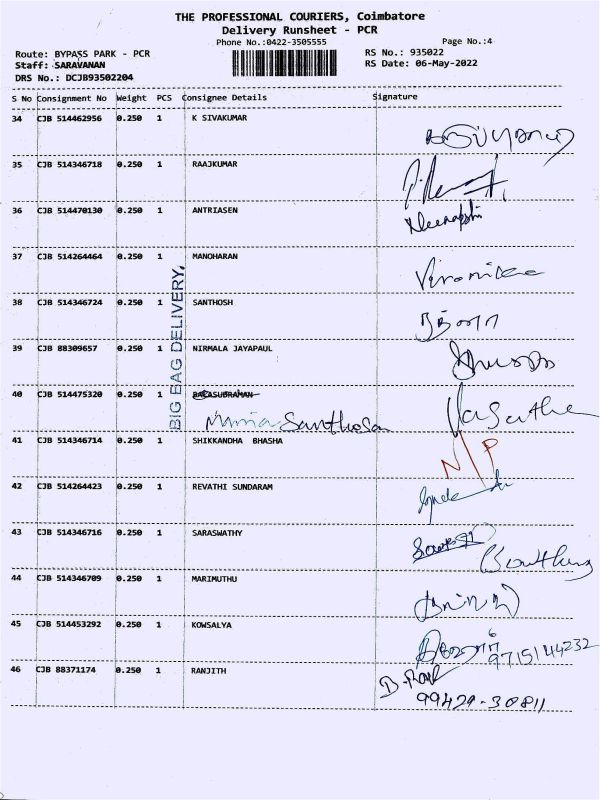 THE PROFESSIONAL COURIERS, Coimbatore
Delivery Runsheet - PCR
Phone No.:0422-3505555
Page No.:4
Route: BYPASS PARK - PCR
RS No.: 935022
Staff: SARAVANAN
RS Date: 06-May-2022
DRS No.: DCJB93502204
S No Consignment No Weight PCS Consignee Details Signature
34 CJB 514462956 0.250 1 K SIVAKUMAR
35 CJB 514346718 0.250 1 RAAJKUMAR
36 CJB 514470130 0.250 1 ANTRIASEN
37 CJB 514264464 0.250 1 MANOHARAN
38 CJB 514346724 0.250 1 SANTHOSH
39 CJB 88309657 0.250 1 NIRMALA JAYAPAUL
BIG BAG DELIVERY,
40 CJB 514475320 0.250 1 BALASUBRAMAN
41 CJB 514346714 0.250 1 SHIKKANDHA BHASHA
N/P
42 CJB 514264423 0.250 1 REVATHI SUNDARAM
43 CJB 514346716 0.250 1 SARASWATHY
44 CJB 514346709 0.250 1 MARIMUTHU
45 CJB 514453292 0.250 1 KOWSALYA
46 CJB 88371174 0.250 1 RANJITH